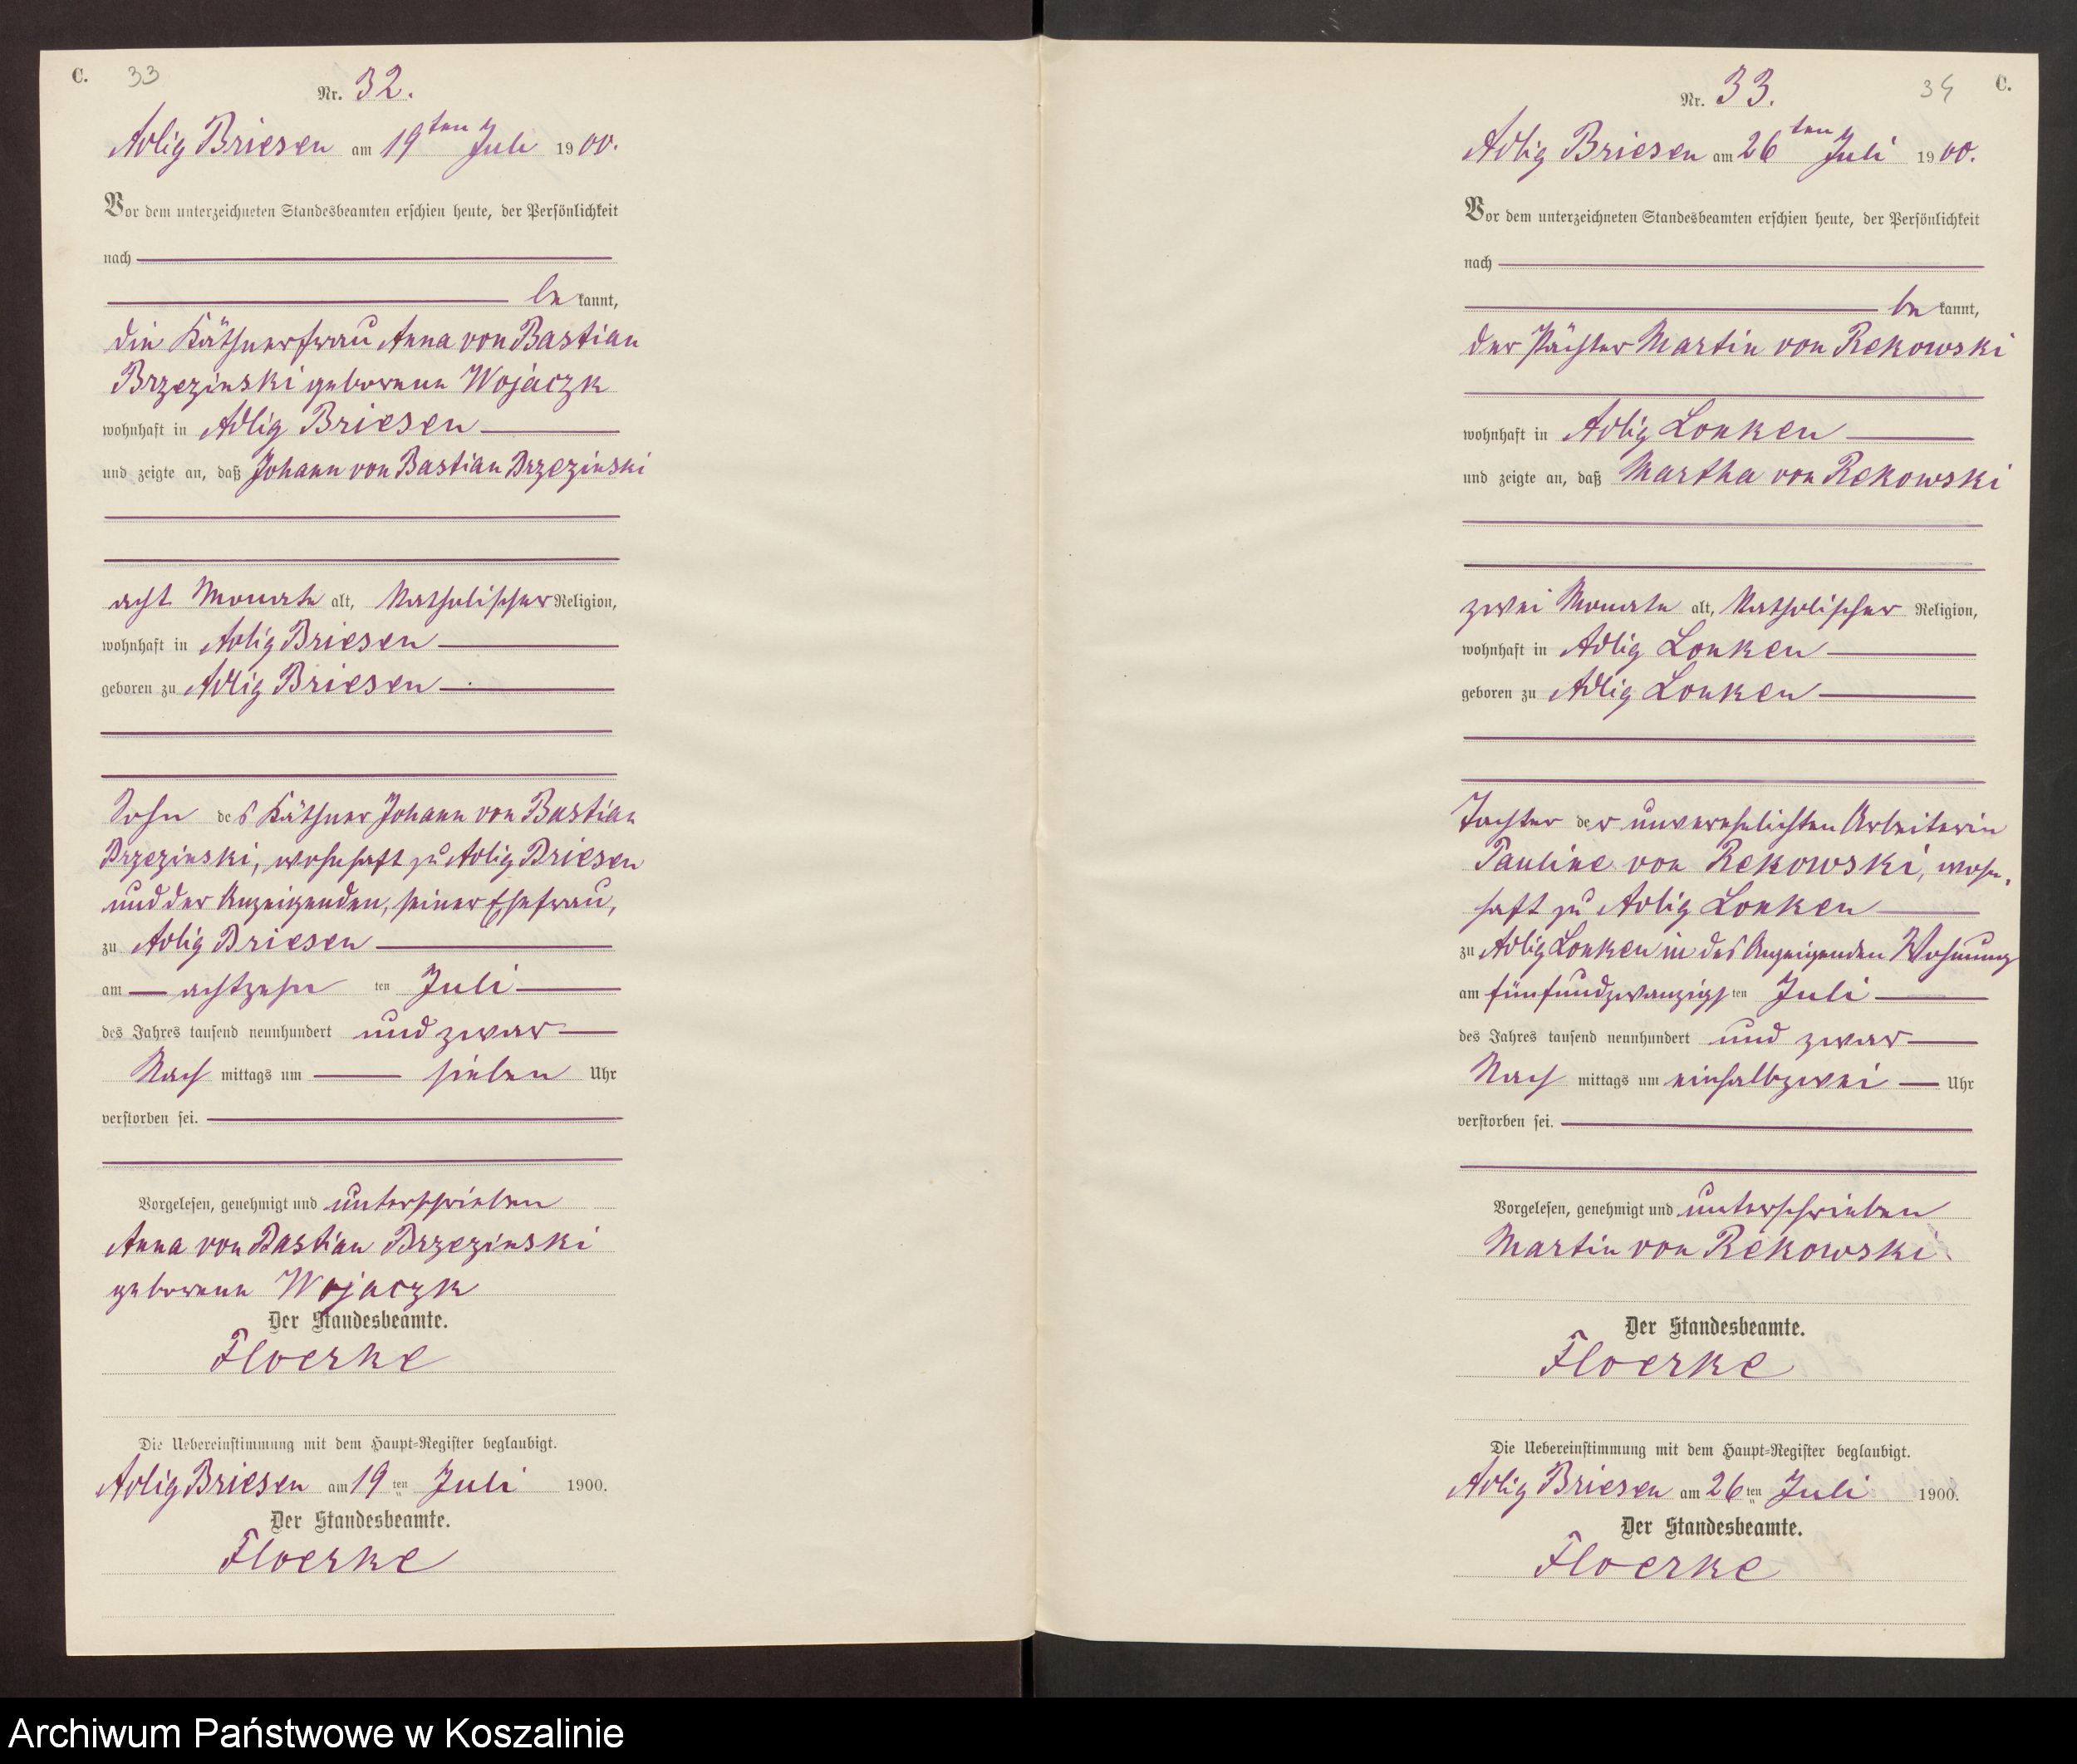 C. 33
Nr. 32.
Adlig Briesen am 19ten Juli 1900.
Vor dem unterzeichneten Standesbeamten erschien heute, der Persönlichkeit
nach
be kannt,
die Käthnerfrau Anna von Bastian
Brzezinski geborene Wojaczk
wohnhaft in Adlig Briesen
und zeigte an, daß Johann von Bastian Brzezinski
acht Monate alt, katholischer Religion,
wohnhaft in Adlig Briesen
geboren zu Adlig Briesen
Sohn des Käthner Johann von Bastian
Brzezinski, wohnhaft zu Adlig Briesen
und der Anzeigenden, seiner Ehefrau,
zu Adlig Briesen
am achtzehn ten Juli
des Jahres tausend neunhundert und zwar
Nach mittags um sieben Uhr
verstorben sei.
Vorgelesen, genehmigt und unterschrieben
Anna von Bastian Brzezinski
geborene Wojaczk
Der Standesbeamte.
Floerke
Die Uebereinstimmung mit dem Haupt-Register beglaubigt.
Adlig Briesen am 19ten Juli 1900.
Der Standesbeamte.
Floerke
34 C.
Nr. 33.
Adlig Briesen am 26ten Juli 1900.
Vor dem unterzeichneten Standesbeamten erschien heute, der Persönlichkeit
nach
be kannt,
der Pächter Martin von Rekowski
wohnhaft in Adlig Lonken
und zeigte an, daß Martha von Rekowski
zwei Monate alt, katholischer Religion,
wohnhaft in Adlig Lonken
geboren zu Adlig Lonken
Tochter der unverehelichten Arbeiterin
Pauline von Rekowski, wohn-
haft zu Adlig Lonken
zu Adlig Lonken in des Anzeigenden Wohnung
am fünfundzwanzigsten Juli
des Jahres tausend neunhundert und zwar
Nach mittags um einhalbzwei Uhr
verstorben sei.
Vorgelesen, genehmigt und unterschrieben
Martin von Rekowski.
Der Standesbeamte.
Floerke
Die Uebereinstimmung mit dem Haupt-Register beglaubigt.
Adlig Briesen am 26ten Juli 1900.
Der Standesbeamte.
Floerke
Archiwum Państwowe w Koszalinie